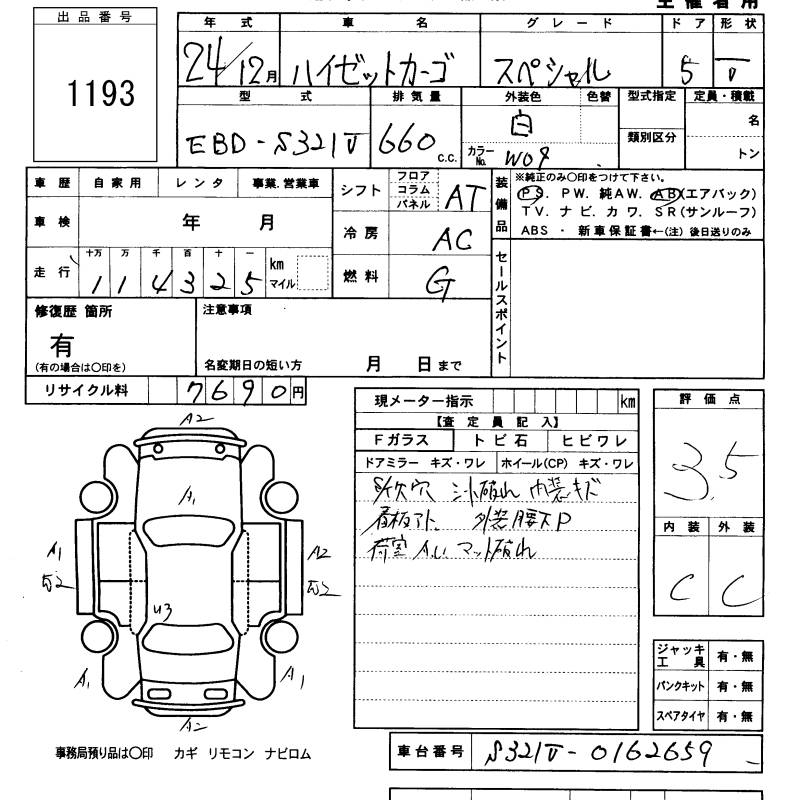 出品番号
1193
年式 車名 グレード ドア 形状
24/12月 ハイゼットカーゴ スペシャル 5 V
型式 排気量 外装色 色替 型式指定 定員・積載
EBD-S321V 660c.c. 白 名
カラーNo. W09 類別区分 トン
車歴 自家用 レンタ 事業.営業車
車検 年 月
走行 十万 万 千 百 十 一
114325 km マイル
シフト フロア コラム パネル AT
冷房 AC
燃料 G
装備品
※純正のみ〇印をつけて下さい。
PS. PW. 純AW. AB(エアバック)
TV. ナビ. カワ. SR(サンルーフ)
ABS ・ 新車保証書←(注) 後日送りのみ
セールスポイント
修復歴 箇所
有
(有の場合は〇印を)
注意事項
名変期日の短い方 月 日まで
リサイクル料 7690円
現メーター指示 km
【査定員記入】
Fガラス トビ石 ヒビワレ
ドアミラー キズ・ワレ ホイール(CP) キズ・ワレ
穴 シート破れ 内装キズ
看板アト 外装腰下P
荷室 マット破れ
評価点
3.5
内装 外装
C C
ジャッキ 工具 有・無
パンクキット 有・無
スペアタイヤ 有・無
A2
A1
A1
A2
U3
A1
A1
事務局預り品は〇印 カギ リモコン ナビロム
車台番号 S321V-0162659